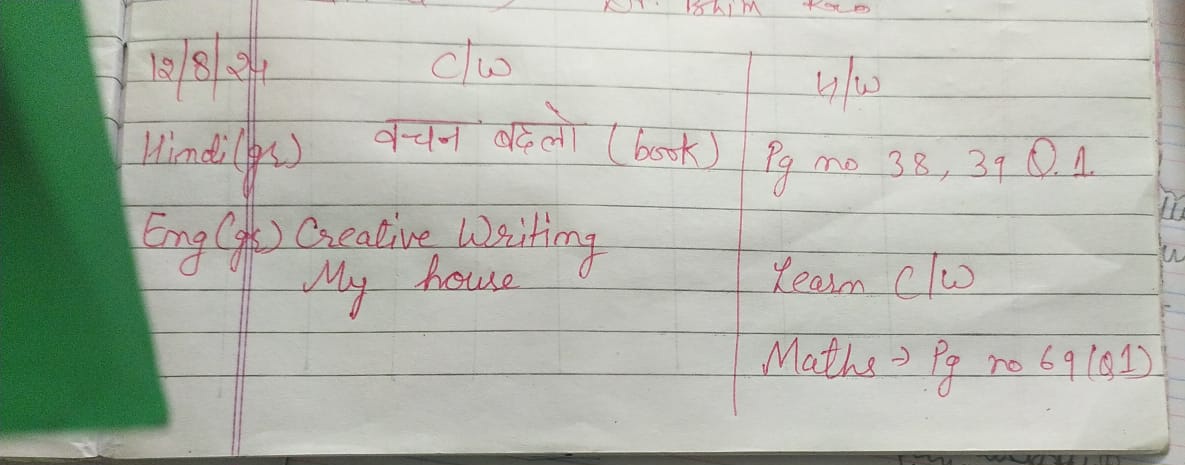 Dr. Bhim Rao
12/8/24 C/W H/W
Hindi (gr) वचन बदलो (book) Pg no 38, 39 Q.1.
Eng (gr) Creative Writing
My house Learn C/W
Maths → Pg no 69 (Q1)